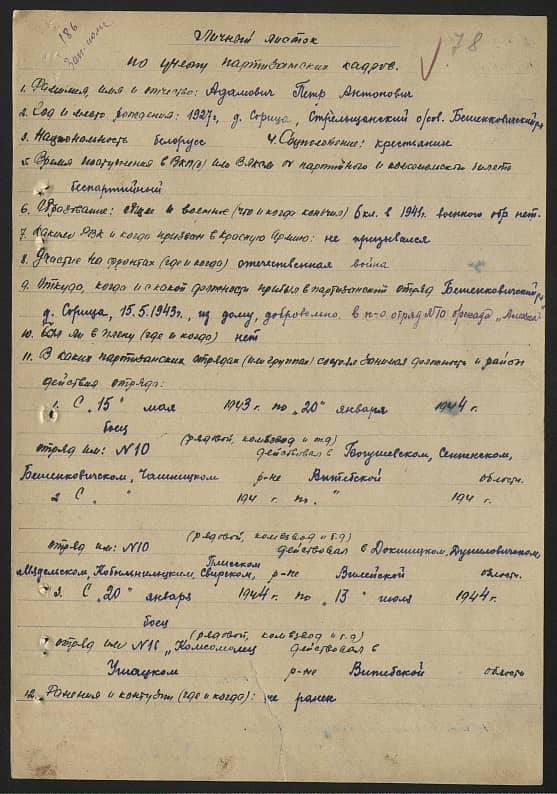 186
78
Личный листок
по учету партизанских кадров.
1. Фамилия имя и отчество: Адамович Петр Антонович
2. Год и место рождения: 1927г, д. Сорица, Стрельщанский с/сов. Бешенковичский р-н
3. Национальность белорусс 4. Соцположение: крестьянин
5. Время поступления в ВКП(б) или ВЛКСМ № партийного и комсомольского билета
беспартийный
6. Образование: общее и военное (что и когда кончил) 6 кл. в 1941г. военного обр нет.
7. Каким РВК и когда призван в Красную Армию: не призывался
8. Участие на фронтах (где и когда) отечественная война
9. Откуда, когда и с какой должности прибыл в партизанский отряд Бешенковичский р-н
д. Сорица, 15.5.1943г., из дому, добровольно в п-о отряд №10 бригада
10. Был ли в плену (где и когда) нет
11. В каких партизанских отрядах (или группах) состоял занимая должность и район
действия отряда:
1. С "15" мая 1943 г. по "20" января 1944 г.
боец
(рядовой, комвзвод и тд)
отряд им: №10 действовал в Богушевском, Сенненском,
Бешенковичском, Чашникском р-не Витебской области.
2 С " " 194 г. по " 194 г.
(рядовой, комвзвод и т.д)
отряд им: №10 действовал в Докшицком, Дуниловичском,
Плисском
Мядельском, Кобыльницким, Свирском, р-не Вилейской область.
3. С "20" января 1944 г. по "13" июля 1944 г.
боец
(рядовой, комвзвод и т.д)
отряд им №16 "Комсомолец действовал в
Ушацком р-не Витебской область
12. Ранения и контузии (где и когда): не ранен